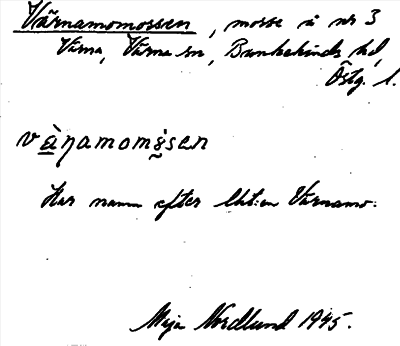 Värnamomossen, mosse å nr 3
Värna, Värna sn, Bankekinds hd,
Östg. l.
vä̀ɳamomɷ̀sen
Har namn efter lht:en Värnamo.
Maja Nordlund 1945.